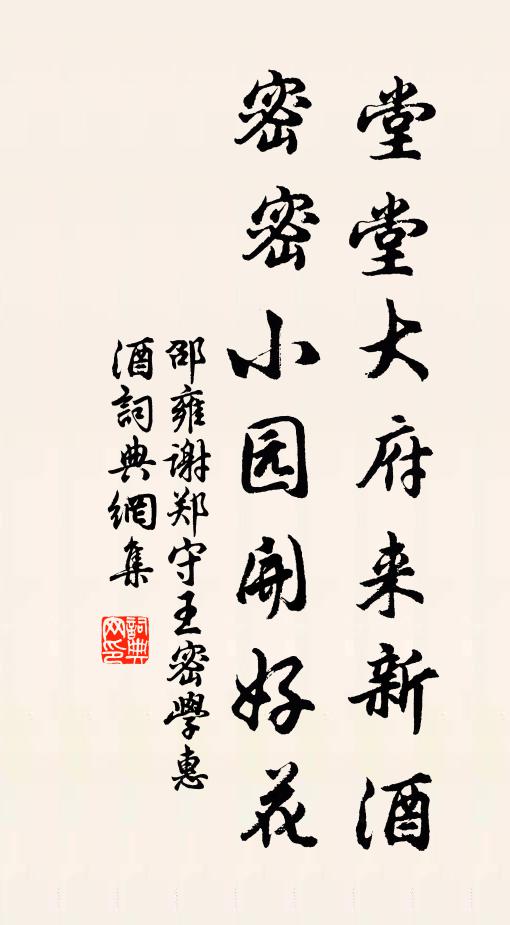 堂堂大府来新酒
密密小园開好花
邵雍谢郑守王密學惠
酒詞典網集
詞典网印